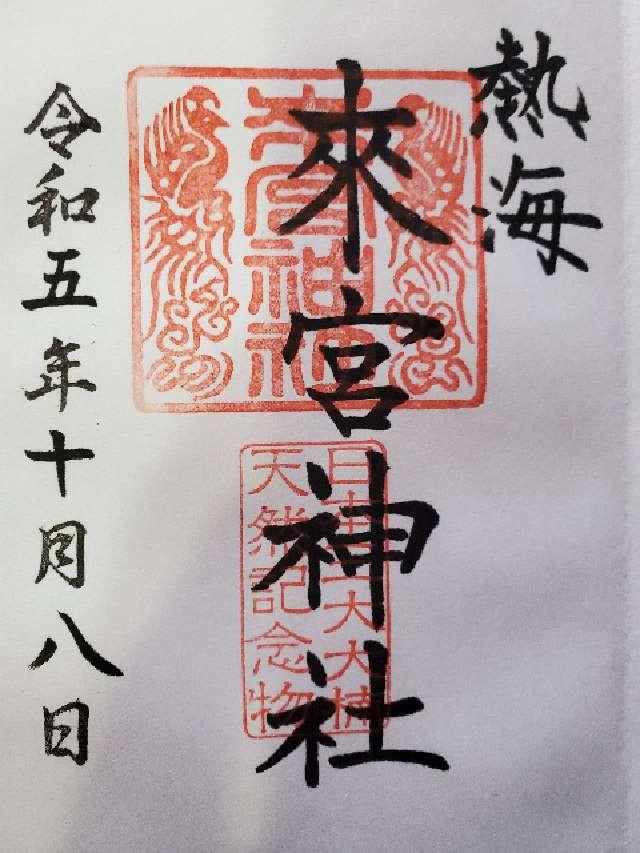 熱海
來宮神社
來宮神社
天然記念物
令和五年十月八日